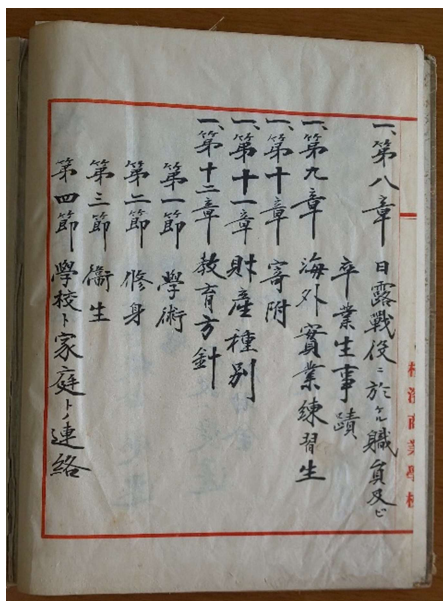 一、第八章　日露戰役ニ於ケル職員及ビ
卒業生事蹟
一、第九章　海外實業練習生
一、第十章　寄附
一、第十一章　財産種別
一、第十二章　教育方針
第一節　學術
第二節　修身
第三節　衞生
第四節　學校ト家庭トノ連絡
商業學校